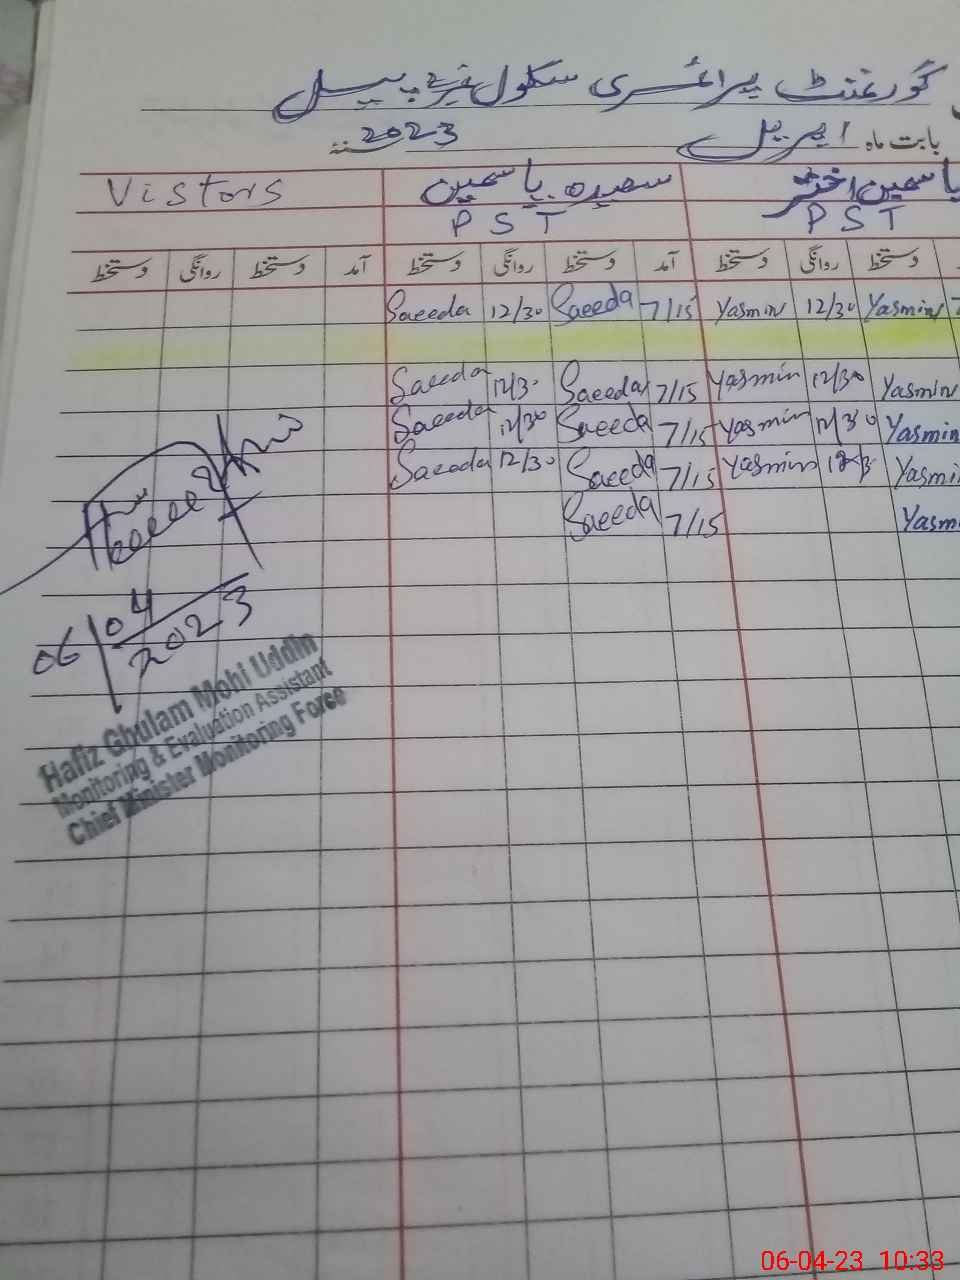 گورنمنٹ پرائمری سکول
بابت ماہ اپریل 2023
Vistors سعیدہ یاسمین یاسمین اختر
PST PST
دستخط روانگی دستخط آمد دستخط روانگی دستخط آمد دستخط روانگی دستخط
Saeeda 12/30 Saeeda 7/15 Yasmin 12/30 Yasmin 7
Saeeda 12/30 Saeeda 7/15 Yasmin 12/30 Yasmin
Saeeda 12/30 Saeeda 7/15 Yasmin 12/30 Yasmin
Saeeda 12/30 Saeeda 7/15 Yasmin 12/3 Yasmi
Saeeda 7/15 Yasm
06/04/2023
Hafiz Ghulam Mohi Uddin
Monitoring & Evaluation Assistant
Chief Minister Monitoring Force
06-04-23 10:33